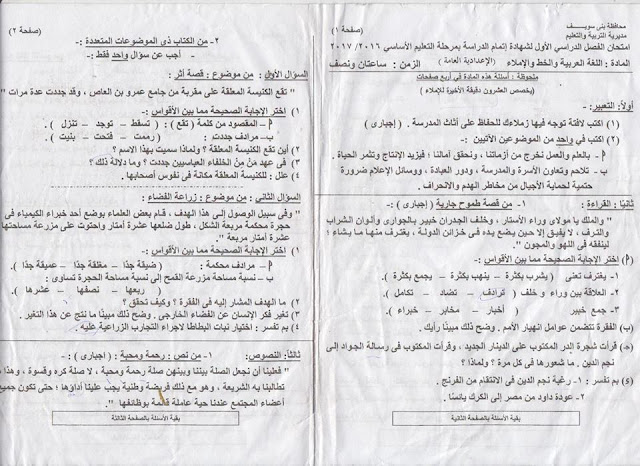 (صفحة ١)
محافظة بنى سويف
مديرية التربية والتعليم
امتحان الفصل الدراسي الأول لشهادة إتمام الدراسة بمرحلة التعليم الأساسي ٢٠١٦ / ٢٠١٧
المادة : اللغة العربية والخط والإملاء (الإعدادية العامة) الزمن : ساعتان ونصف
ملحوظة : أسئلة هذه المادة في أربع صفحات
(يخصص العشرون دقيقة الأخيرة للإملاء)
أولاً: التعبير:-
١) اكتب لافتة توجه فيها زملاءك للحفاظ على أثاث المدرسة . ( إجبارى )
٢) اكتب في واحد من الموضوعين الآتيين :-
أ- بالعلم والعمل نخرج من أزماتنا ، ونحقق آمالنا ؛ فيزيد الإنتاج وتثمر الحياة .
ب- تلاحم وتعاون الأسرة والمدرسة ، ودور العبادة ، ووسائل الإعلام ضرورة
حتمية لحماية الأجيال من مخاطر الهدم والانحراف.
ثانيًا : القراءة : ١- من قصة طموح جارية ( إجبارى ) :-
" والملك يا مولاى وراء الأستار ، وخلف الجدران خبير بالجوارى وألوان الشراب
والترف ، لا يفيق إلا حين يضع يده فى خزائن الدولة ، يغترف منها ما يشاء ؛
لينفقه فى اللهو والمجون "
أ) اختر الإجابة الصحيحة مما بين الأقواس :-
١. يغترف تعنى ( يشرب بكثرة – ينهب بكثرة – يجمع بكثرة ).
٢. العلاقة بين وراء و خلف ( ترادف – تضاد – تكامل ).
٣- جمع خبير ( أخبار – مخابر – خبراء ).
ب) الفقرة تتضمن عوامل انهيار الأمم . وضح ذلك مبينًا رأيك .
ج) قرأت شجرة الدر المكتوب على الدينار الجديد ، وقرأت المكتوب فى رسالة الجواد إلى
نجم الدين . ما شعورها فى كل مرة ؟ ولماذا ؟
د) بم تفسر : ١- رغبة نجم الدين فى الانتقام من الفرنج .
٢- عودة داود من مصر إلى الكرك يائسًا .
بقية الأسئلة بالصفحة الثانية
(صفحة ٢)
٢- من الكتاب ذى الموضوعات المتعددة :-
- أجب عن سؤال واحد فقط :-
السؤال الأول : من موضوع : قصة أثر :
" تقع الكنيسة المعلقة على مقربة من جامع عمرو بن العاص ، وقد جددت عدة مرات "
١) اختر الإجابة الصحيحة مما بين الأقواس :-
أ- المقصود من كلمة ( تقع ) : ( تسقط – توجد – تنزل ).
ب- مرادف جددت : ( رممت – فتحت – بنيت )
٢) أين تقع الكنيسة المعلقة ؟ ولماذا سميت بهذا الاسم ؟
٣) فى عهد مَنْ مِنَ الخلفاء العباسيين جددت ؟ وما دلالة ذلك ؟
٤) علل : للكنيسة المعلقة مكانة فى نفوس أصحابها .
السؤال الثانى : من موضوع : زراعة الفضاء :
" وفى سبيل الوصول إلى هذا الهدف ، قام بعض العلماء بوضع أحد خبراء الكيمياء فى
حجرة محكمة مربعة الشكل ، طول ضلعها عشرة أمتار واحتوت على مزرعة مساحتها
عشرة أمتار مربعة "
١) اختر الإجابة الصحيحة مما بين الأقواس :-
أ- مرادف محكمة : ( ضيقة جدًا – مغلقة جدًا – عميقة جدًا )
ب- نسبة مساحة مزرعة القمح إلى نسبة مساحة الحجرة تساوى :
( ربعها – نصفها – عشرها ).
٢) ما الهدف المشار إليه فى الفقرة ؟ وكيف تحقق ؟
٣) تغير فكر الإنسان عن الفضاء الخارجى . وضح ذلك مبينًا ما نتج عن هذا التغير .
٤) بم تفسر : اختيار نبات البطاطا لإجراء التجارب الزراعية عليه .
ثالثاً: النصوص: ١- من نص : رحمة ومحبة : ( إجبارى ) :-
" فعلينا أن نجعل الصلة بيننا وبينهن صلة رحمة ومحبة ، لا صلة كره وقسوة ، وهذا ما
تطالبنا به الشريعة ، وهو مع ذلك فريضة وطنية يجب علينا أداؤها ؛ حتى تكون جميع
أعضاء المجتمع عندنا حية عاملة قائمة بوظائفها "
بقية الأسئلة بالصفحة الثالثة